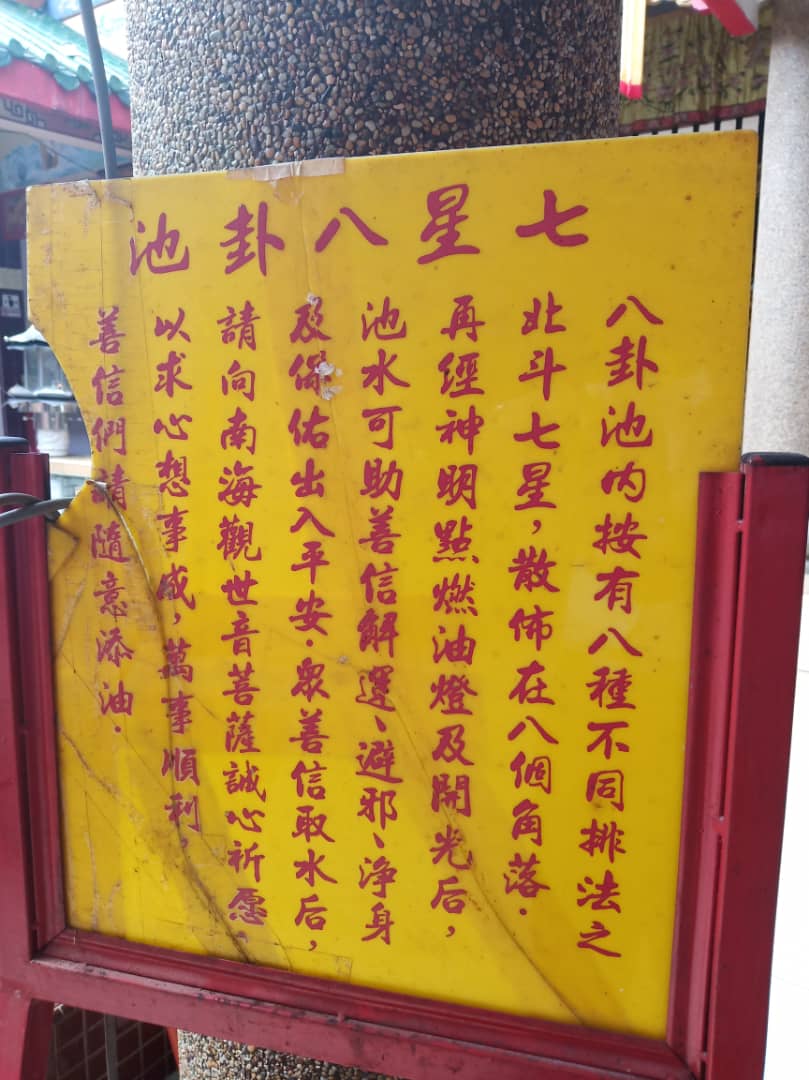 七星八卦池
八卦池内按有八種不同排法之
北斗七星，散佈在八個角落．
再經神明點燃油燈及開光后，
池水可助善信解運、避邪、净身
及保佑出入平安．眾善信取水后，
請向南海觀世音菩薩誠心祈愿。
以求心想事成，萬事順利，
善信們請隨意添油．